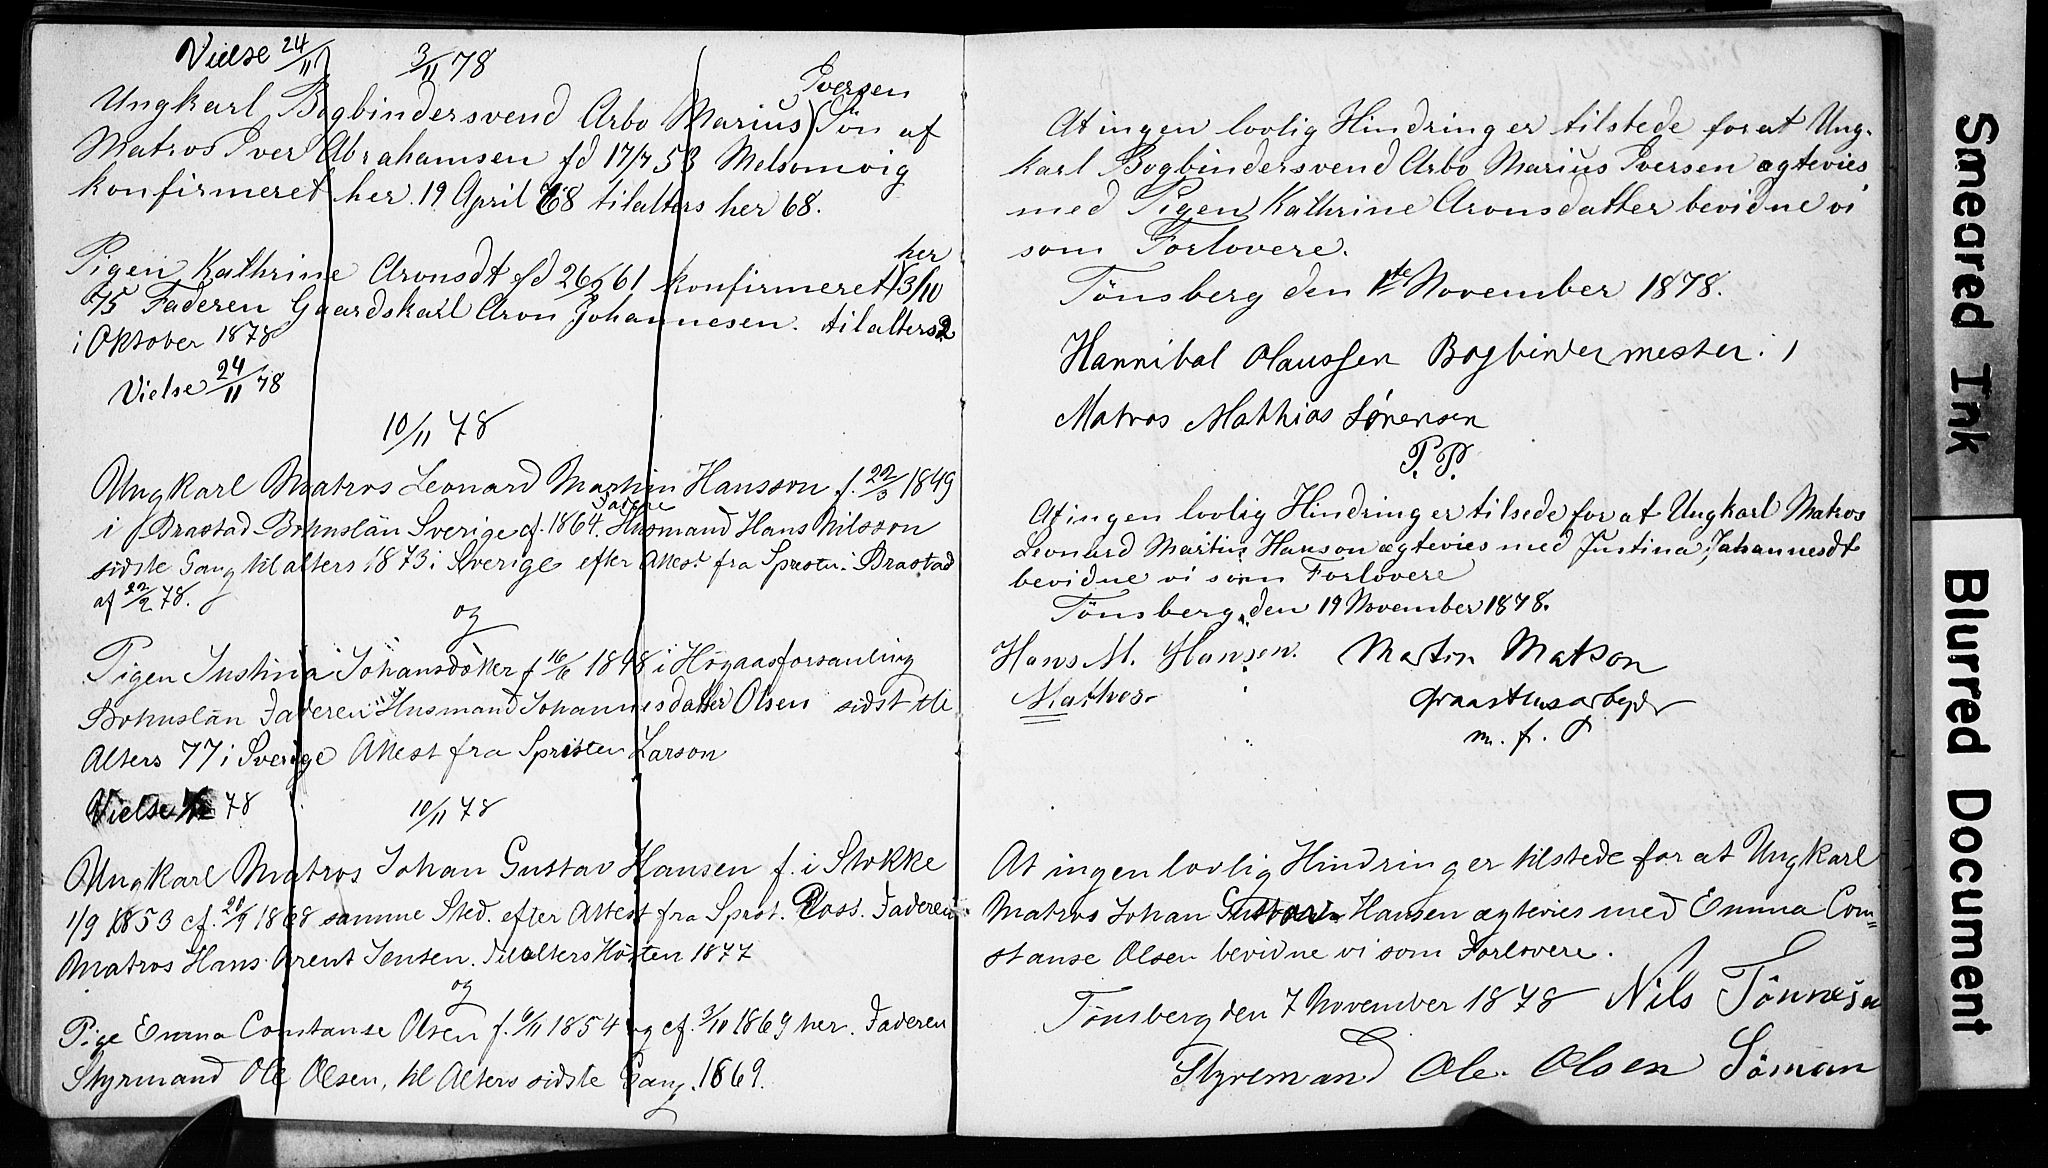 Vielse 24/11 3/11 78
Iversen
Ungkarl Bogbindersvend Arbo Marius) Søn af
Matros Iver Abrahamsen fd 17/7 53 Melsomvig
konfirmeret her 19 April 68 tilalters her 68.
her
Pigen Kathrine Aronsdt fd 26/9 61 konfirmeret) 3/10
75 Faderen Gaardskarl Aron Johannesen. tilalters
i Oktober 1878
Vielse 24/11 78
10/11 78
Ungkarl Matros Leonard Martin Hansson f. 22/3 1849
Fadere
i Brastad Bohuslän Sverige cf. 1864. Husmand Hans Nilsson
sidste Gang til alters 1873 i Sverige efter Attest fra Sprstn. i Brastad
af 22/2 78.
og
Pigen Justina Johansdotter f 16/6 1848 i Högaasforsamling
Bohuslän Faderen Husmand Johannesdatter Olsen sidst til
Alters 77 i Sverige Attest fra Spristen Larson
Vielse 78 10/11 78
Ungkarl Matros Johan Gustav Hansen f. i Stokke
1/9 1853 cf. 20/9 1868 samme Sted. efter Attest fra Sprst. Ross. Faderen
Matros Hans Arent Jensen. Tilalters Hösten 1877
og
Pige Emma Constanse Olsen f. 6/11 1854 og cf. 3/10 1869 her. Faderen
Styrmand Ole Olsen, til Alters sidste Gang 1869.
At ingen lovlig Hindring er tilstede for at Ung-
karl Bogbindersvend Arbo Marius Iversen ægtevies
med Pigen Kathrine Aronsdatter bevidne vi
som Forlovere.
Tönsberg den 1ste November 1878.
Hannibal Olaussen Bogbindermester.
Matros Mathias Sørensen
P. P.
At ingen lovlig Hindring er tilsede for at Ungkarl Matros
Leonard Martin Hanson ægtevies med Justina Johannesdt
bevidne vi som Forlovere
Tönsberg den 19 November 1878.
Hans M. Hansen. Martin Matson
Matros
m. f. P
At ingen lovlig Hindring er tilstede for at Ungkarl
Matros Johan Gustav Hansen ægtevies med Emma Con=
stanse Olsen bevidne vi som Forlovere.
Tönsberg den 7 November 1878 Nils Tönnesen
Styremand Ole Olsen Söman
Smeared Ink
Blurred Document